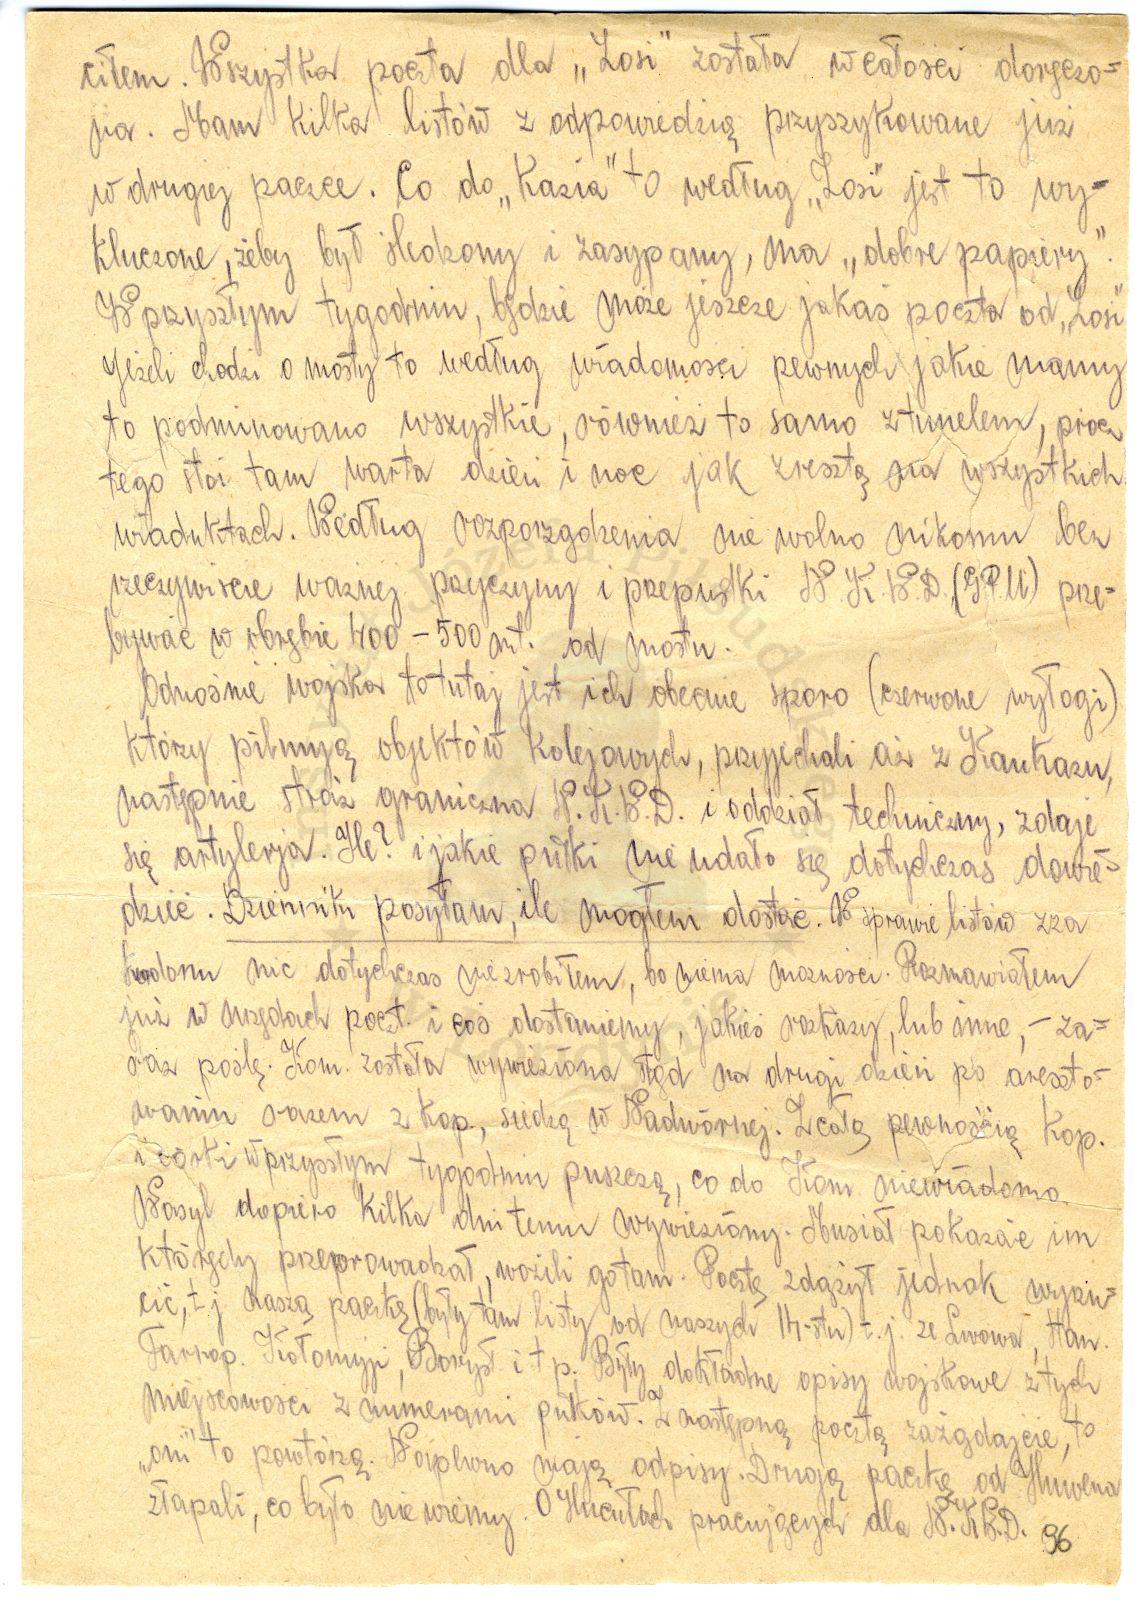 ciłem. Wszystka poczta dla „Zosi" została w całości doręczo=
na. Mam kilka listów z odpowiedzią przyszykowane już
w drugiej paczce. Co do „Kazia" to według „Zosi" jest to wy=
kluczone, żeby był śledzony i zasypany, ma „dobre papiery".
W przyszłym tygodniu, będzie może jeszcze jakaś poczta od „Zosi"
Jeżeli chodzi o mosty to według wiadomości pewnych jakie mamy
to podminowano wszystkie, również to samo z tunelem, prócz
tego stoi tam warta dzień i noc jak zresztą na wszystkich
wiaduktach. Według rozporządzenia nie wolno nikomu bez
rzeczywiście ważnej przyczyny i przepustki N.K.W.D. (G.P.U) prze=
bywać w obrębie 400 – 500 mt. od mostu.
Odnośnie wojska to tutaj jest ich obecnie sporo (czerwone wyłogi)
którzy pilnują objektów kolejowych, przyjechali aż z Kaukazu,
następnie straż graniczna N.K.W.D. i oddział techniczny, zdaje
się artylerja. Ile? i jakie pułki nie udało się dotychczas dowie=
dzieć. Dzienniki posyłam, ile mogłem dostać. W sprawie listów zza
kordonu nic dotychczas nie zrobiłem, bo niema możności. Rozmawiałem
już w urzędach poczt. i coś dostaniemy, jakieś rozkazy, lub inne, – za=
raz poślę. Kom. została wywieziona stąd na drugi dzień po areszto=
waniu razem z Kop., siedzą w Nadwórnej. Z całą pewnością Kop.
i córki w przyszłym tygodniu puszczą, co do Kom niewiadomo
Wasyl dopiero kilka dni temu wywieziony. Musiał pokazać im
którędy przeprowadzał, wozili go tam. Pocztę zdążył jednak wyrzu=
cić, t.j naszą paczkę (były tam listy od naszych 14-stu) t.j. ze Lwowa, Stan.
Tarnop. Kołomyji, Boryst. i t p. Były dokładne opisy wojskowe z tych
miejscowości z numerami pułków. Z następną pocztą zażądajcie, to
„oni" to powtórzą. Napewno mają odpisy. Drugą paczkę od
złapali, co było nie wiemy. O Hucułach pracujących dla N.K.W.D.
96